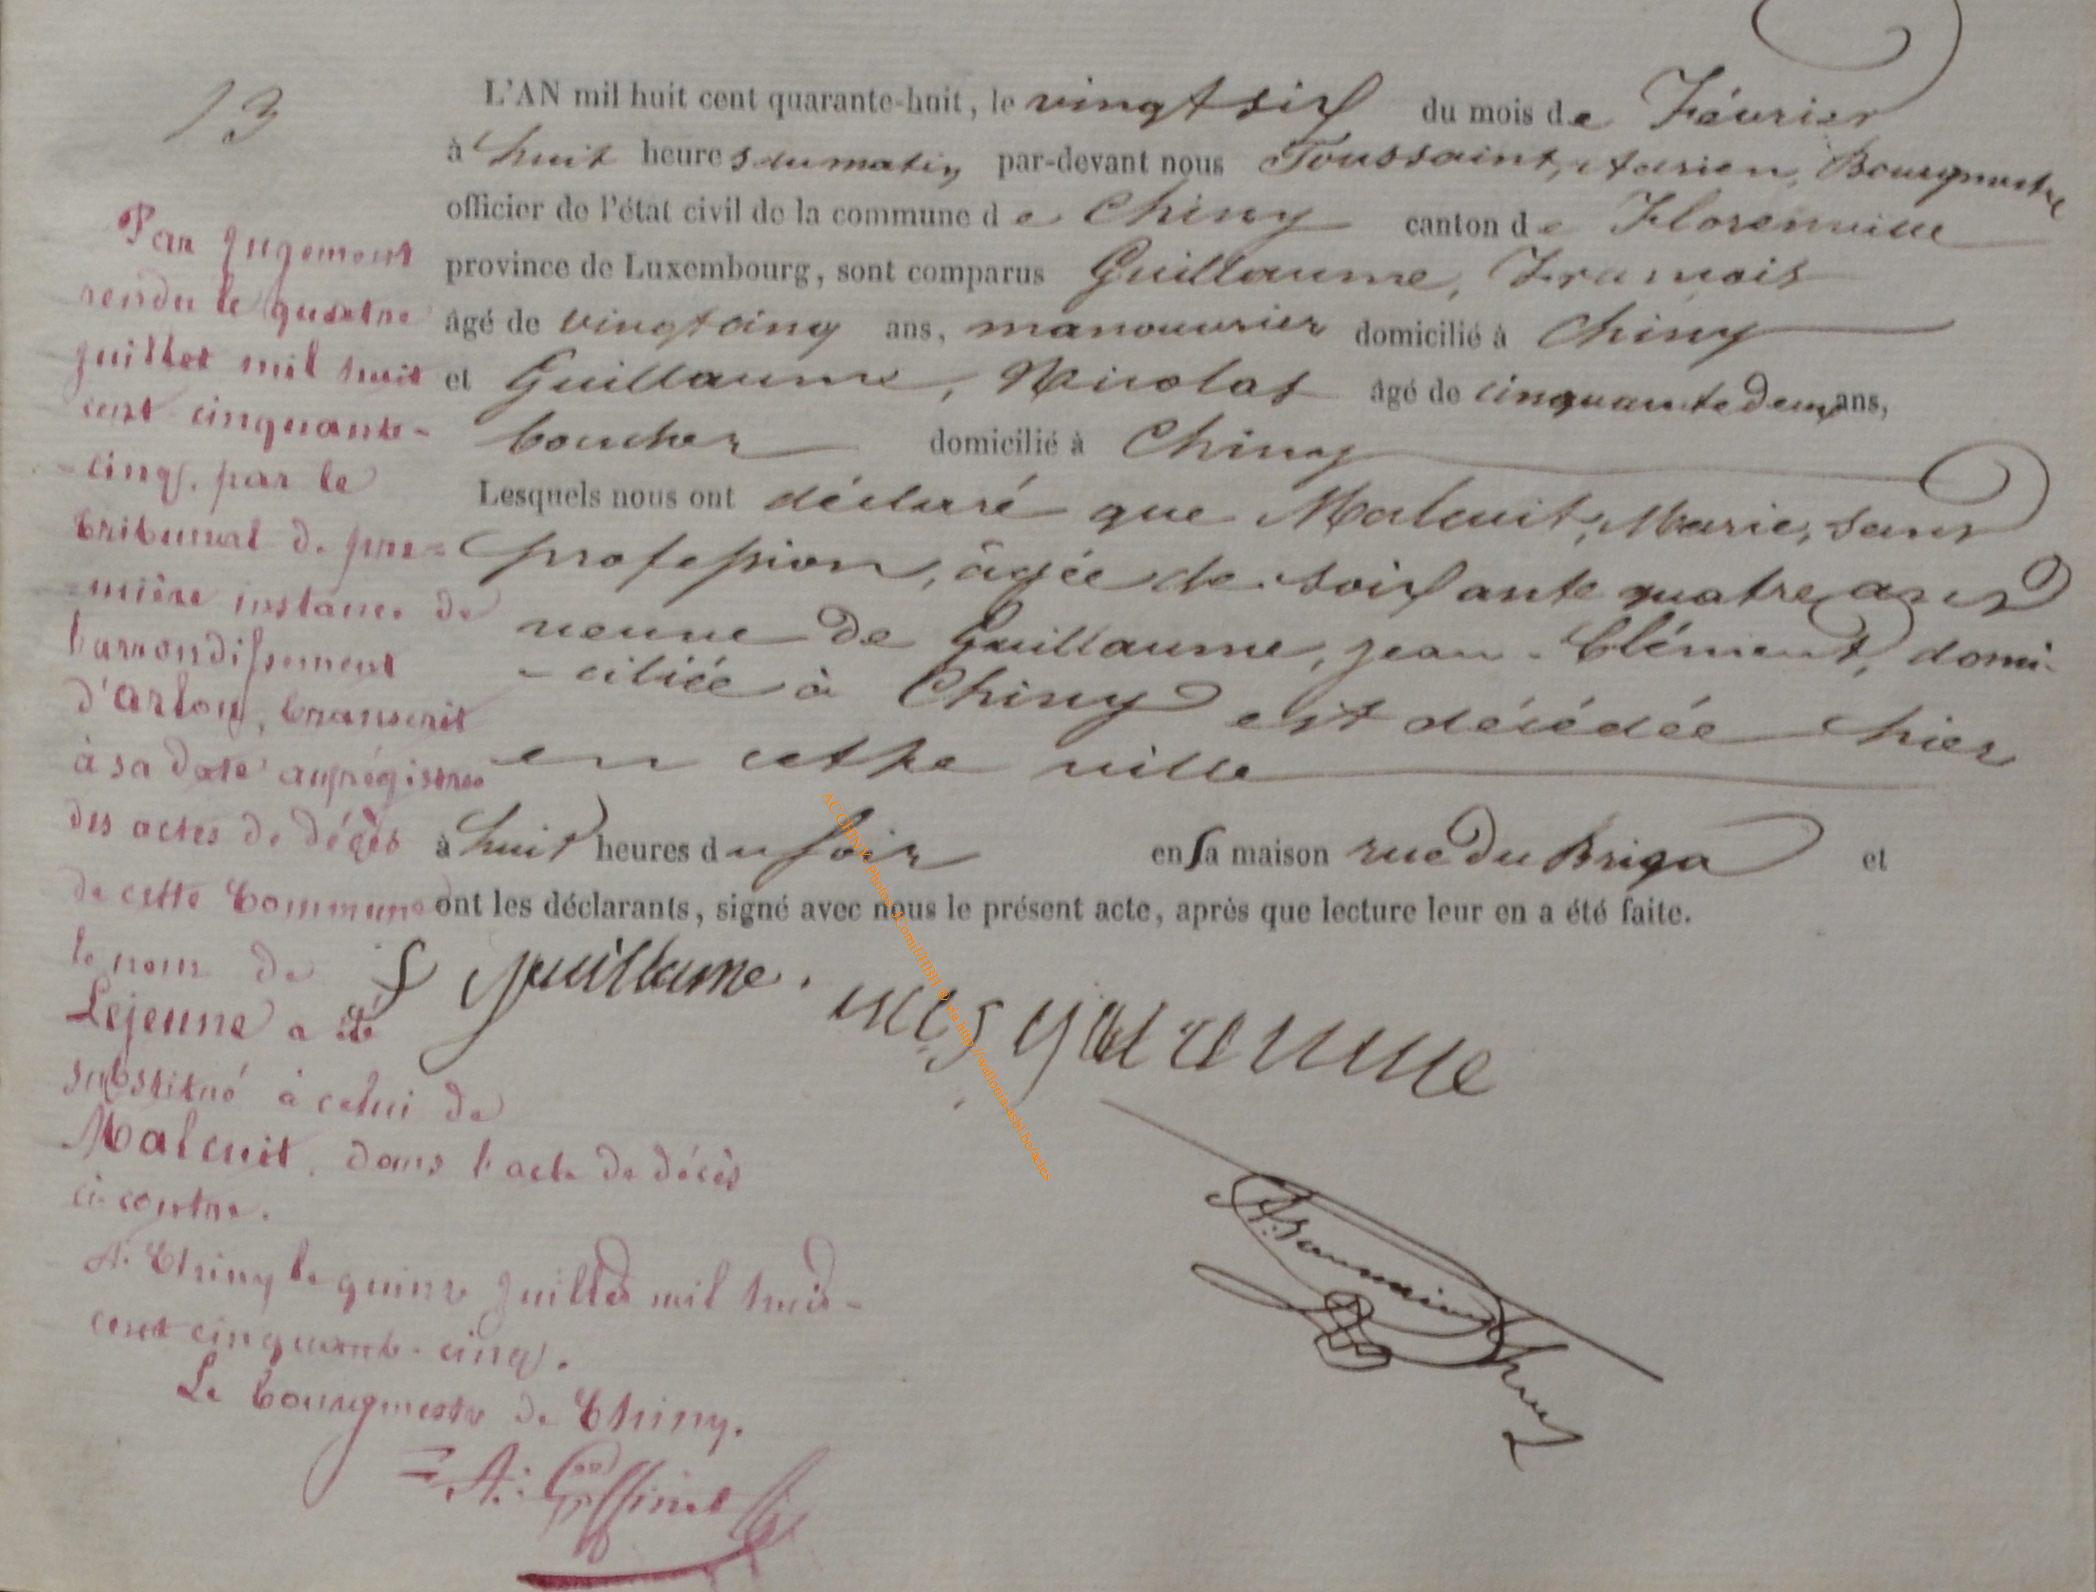 13
L'AN mil huit cent quarante-huit, le vingt six du mois de Février
à huit heures du matin par-devant nous Toussaint, Adrien, Bourgmestre
officier de l'état civil de la commune de Chiny canton de Florenville
province de Luxembourg, sont comparus Guillaume, François
âgé de vingt cinq ans, manouvrier domicilié à Chiny
et Guillaume, Nicolas âgé de cinquante deux ans,
boucher domicilié à Chiny
Lesquels nous ont déclaré que Malcuit, Marie, sans
profession, âgée de soixante quatre ans
veuve de Guillaume, jean-Clément, domi-
-ciliée à Chiny est décédée hier
en cette ville
à huit heures du soir en sa maison rue du Briga et
ont les déclarants, signé avec nous le présent acte, après que lecture leur en a été faite.
f Guillaume.
Par jugement
rendu le quatre
juillet mil huit
cent cinquante-
-cinq, par le
tribunal de pre-
-mière instance de
l'arrondissement
d'arlon, transcrit
à sa date au régistre
des actes de décès
de cette Commune
le nom de
Lejeune a été
substitué à celui de
Malcuit, dans l'acte de décès
ci-contre.
A Chiny le quinze juillet mil huit-
cent cinquante-cinq.
Le bourgmestre de Chiny.
A: Goffinet